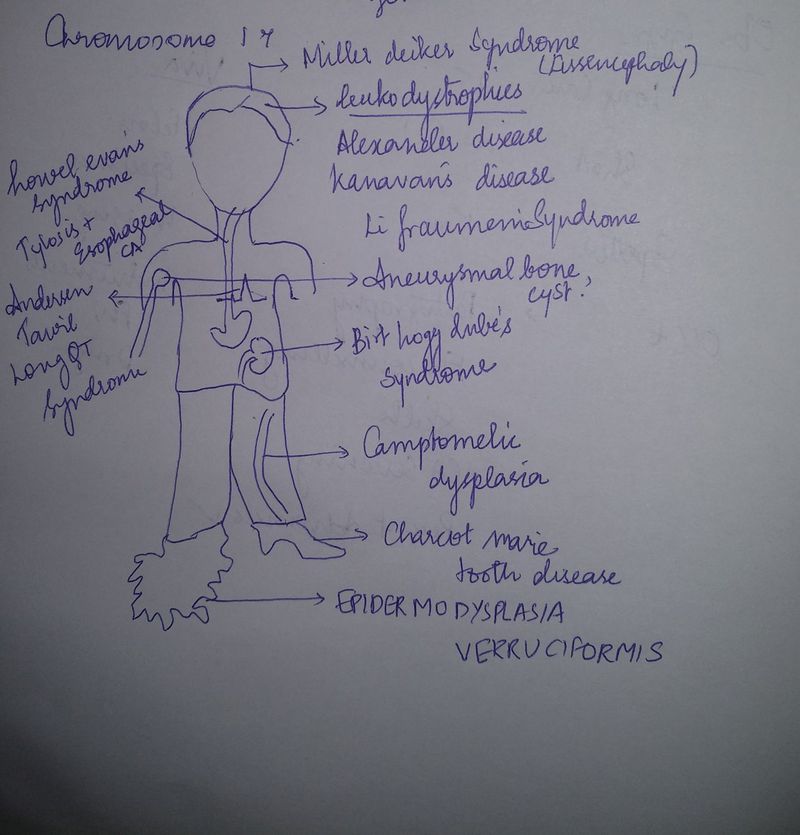 Chromosome 17
Miller deiker Syndrome
(Lissencephaly)
leukodystrophies
Alexander disease
Kanavan's disease
Li fraumeni Syndrome
Aneurysmal bone
cyst?
Birt hogg dube's
syndrome
Camptomelic
dysplasia
Charcot marie
tooth disease
EPIDERMODYSPLASIA
VERRUCIFORMIS
howel evan's
syndrome
Tylosis +
Esophageal
CA
Andersen
Tawil
Long QT
Syndrome